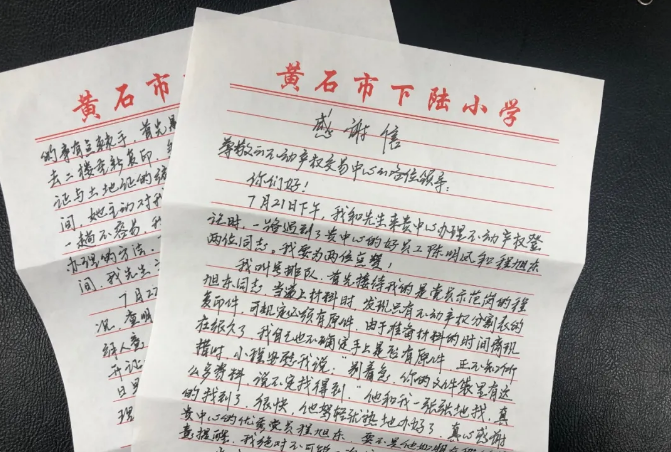 黄石市
的专有点棘手,首先是
去二楼重新复印,
证与土地证的
间,她主动对我
一趟不容易,我
办理的方法,
间,我先生
7月22
况,查明
经人意
开证
日
理
黄石市下陆小学
感谢信
尊敬的不动产权交易中心的各位领导:
你们好!
7月21日下午,我和先生来贵中心办理不动产权登
记时,一路遇到了贵中心的好员工陈明凤和程旭东
两位同志。我要为两位点赞。
我叫号排队,首先接待我的是党员示范岗的程
旭东同志,当递上材料时,发现只有不动产权分割表的
复印件,可规定必须有原件,由于准备材料的时间痛现
在很久了,我自己也不确定手上是否有原件,正不知所
措时,小程安慰我说:“别着急,你的文件袋里有这
么多资料,说不定我得到。”他和我一张张地找,真
的找到了,很快,他驾轻就熟地办好了。真心感谢
贵中心的优秀党员程旭东,要不是他
提醒,我绝对不可能